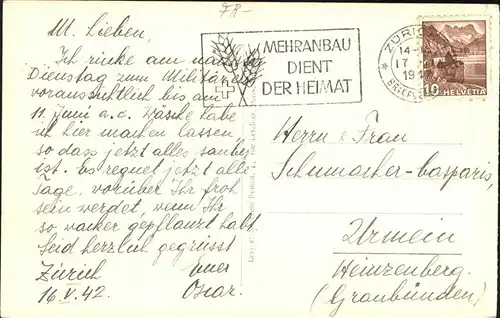 FR-
M. Lieben,
Ich rücke am nächsten
Dienstag zum Militär ein
voraussichtlich bis am
11. Juni a.c. Wäsche habe
ich hier machen lassen,
so dass jetzt alles sauber
ist. Es regnet jetzt alle
Tage, vorüber Ihr froh
sein werdet, wenn Ihr
so wacker gepflanzt habt.
Seid herzlich gegrüsst
Zürich Euer
16.V.42. Oscar.
MEHRANBAU
DIENT
DER HEIMAT
ZÜRICH
14-
17
19
BRIEFV
10 HELVETIA
Herrn & Frau
Schumacher-Casparis,
Urmein
Heinzenberg.
(Graubünden)